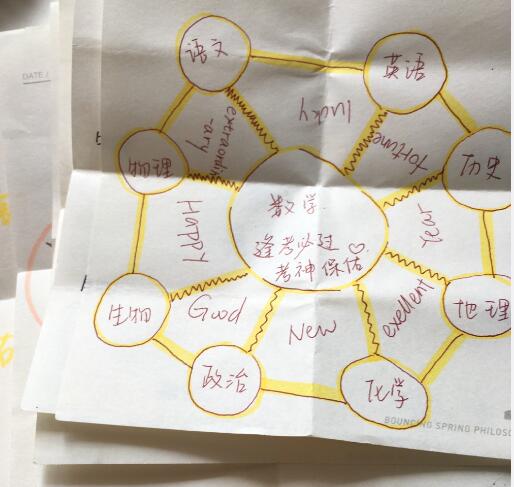 DATE /
语文
英语
lucky
extraordin
-ary
fortune
物理
历史
数学
逢考必过♡
考神保佑
HAPPY
year
生物
Good
New
exellent
地理
政治
化学
BOUNCING SPRING PHILOS